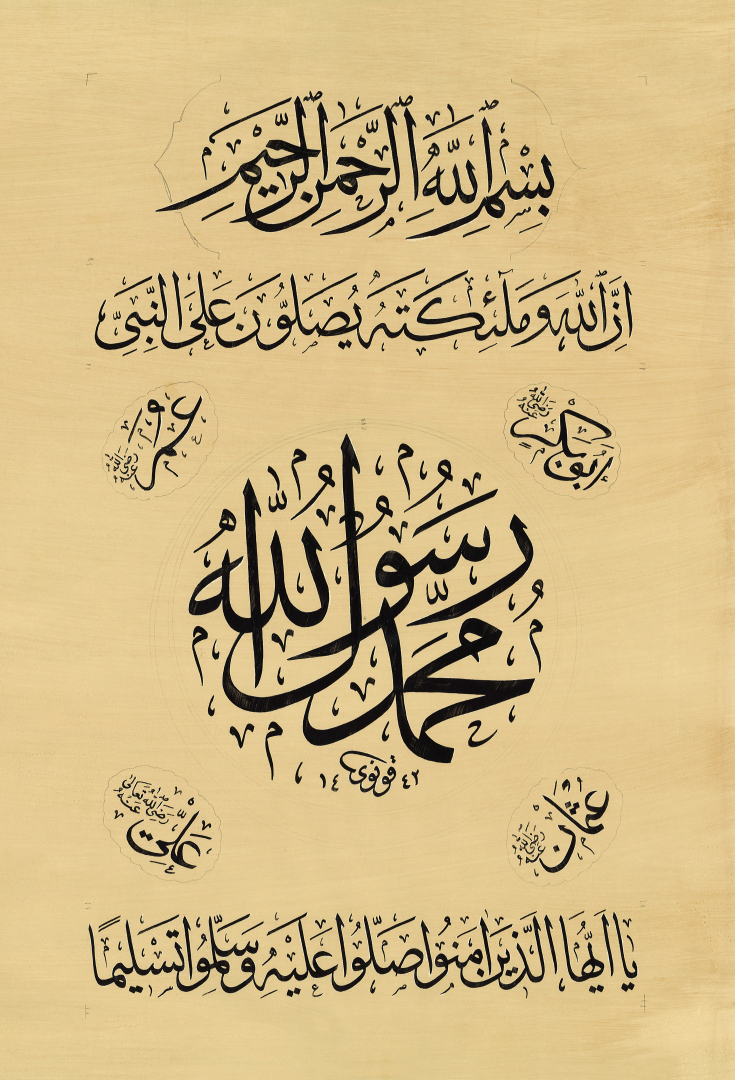 بِسْمِ اللّٰهِ الرَّحْمٰنِ الرَّحِيْمِ
اِنَّ اللّٰهَ وَمَلٰٓئِكَتَهُ يُصَلُّوْنَ عَلَى النَّبِيِّ
ابُوْبَكْرٍ رَضِيَ اللّٰهُ عَنْهُ
عُمَرْ رَضِيَ اللّٰهُ عَنْهُ
مُحَمَّدٌ رَسُوْلُ اللّٰهِ
قونوى ١٤٤٢
عُثْمَانْ رَضِيَ اللّٰهُ عَنْهُ
عَلِيّ رَضِيَ اللّٰهُ تَعَالٰى عَنْهُ
يَا اَيُّهَا الَّذِيْنَ اٰمَنُوْا صَلُّوْا عَلَيْهِ وَسَلِّمُوْا تَسْلِيْمًا